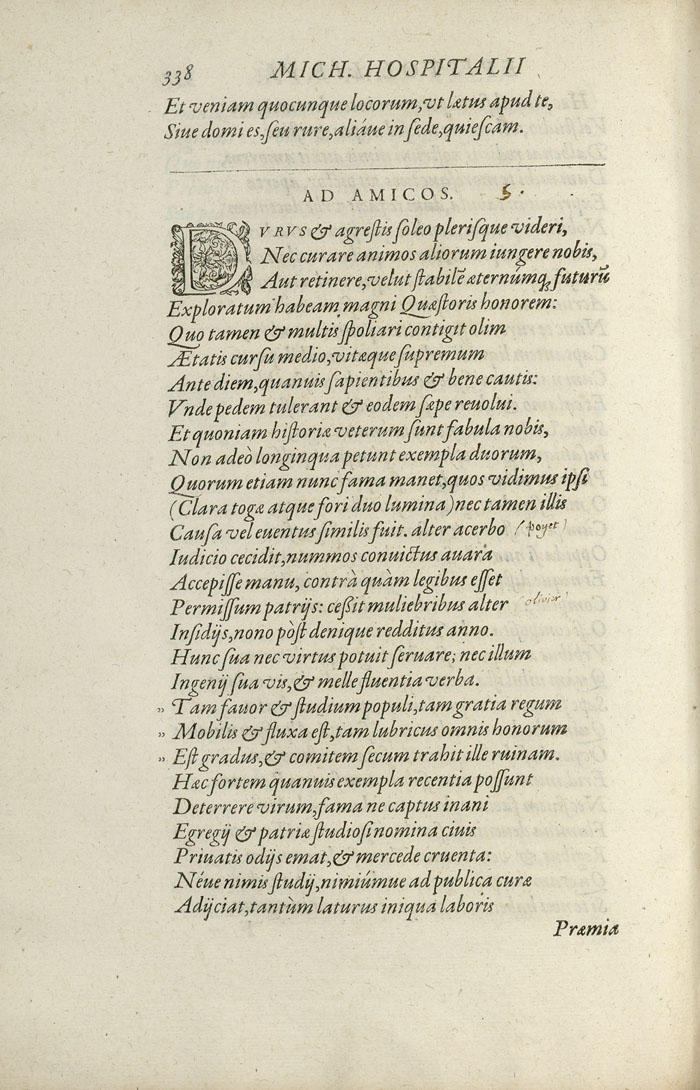 338 MICH. HOSPITALII
Et veniam quocunque locorum, vt lætus apud te,
Siue domi es, seu rure, aliáue in sede, quiescam.
AD AMICOS. 5.
DVRVS & agrestis soleo plerisque videri,
Nec curare animos aliorum iungere nobis,
Aut retinere, velut stabilē æternúmq; futurū
Exploratum habeam magni Quæstoris honorem:
Quo tamen & multis spoliari contigit olim
Ætatis cursu medio, vitæque supremum
Ante diem, quanuis sapientibus & bene cautis:
Vnde pedem tulerant & eodem sæpe reuolui.
Et quoniam historiæ veterum sunt fabula nobis,
Non adeò longinqua petunt exempla duorum,
Quorum etiam nunc fama manet, quos vidimus ipsi
(Clara togæ atque fori duo lumina) nec tamen illis
Causa vel euentus similis fuit. alter acerbo (poyet)
Iudicio cecidit, nummos conuictus auara
Accepisse manu, contrà quàm legibus esset
Permissum patrijs: cessit muliebribus alter (olivier)
Insidijs, nono pòst denique redditus anno.
Hunc sua nec virtus potuit seruare; nec illum
Ingenij sua vis, & melle fluentia verba.
" Tam fauor & studium populi, tam gratia regum
" Mobilis & fluxa est, tam lubricus omnis honorum
" Est gradus, & comitem secum trahit ille ruinam.
Hæc fortem quanuis exempla recentia possunt
Deterrere virum, fama ne captus inani
Egregij & patriæ studiosi nomina ciuis
Priuatis odijs emat, & mercede cruenta:
Néue nimis studij, nimiúmue ad publica curæ
Adijciat, tantùm laturus iniqua laboris
Præmia